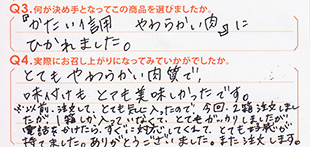 Q3.何が決め手となってこの商品を選びましたか。
『かたい信用　やわらかい肉』に
ひかれました。
Q4.実際にお召し上がりになってみていかがでしたか。
とてもやわらかい肉質で、
味付けもとても美味しかったです。
※以前、注文して、とても気に入ったので、今回、2箱注文しまし
たが、1箱しか入っていなくて、とてもがっかりしましたが、
電話をかけたら、すぐに対応してくれて、とても好感が
持てました。ありがとうございました。また注文します。